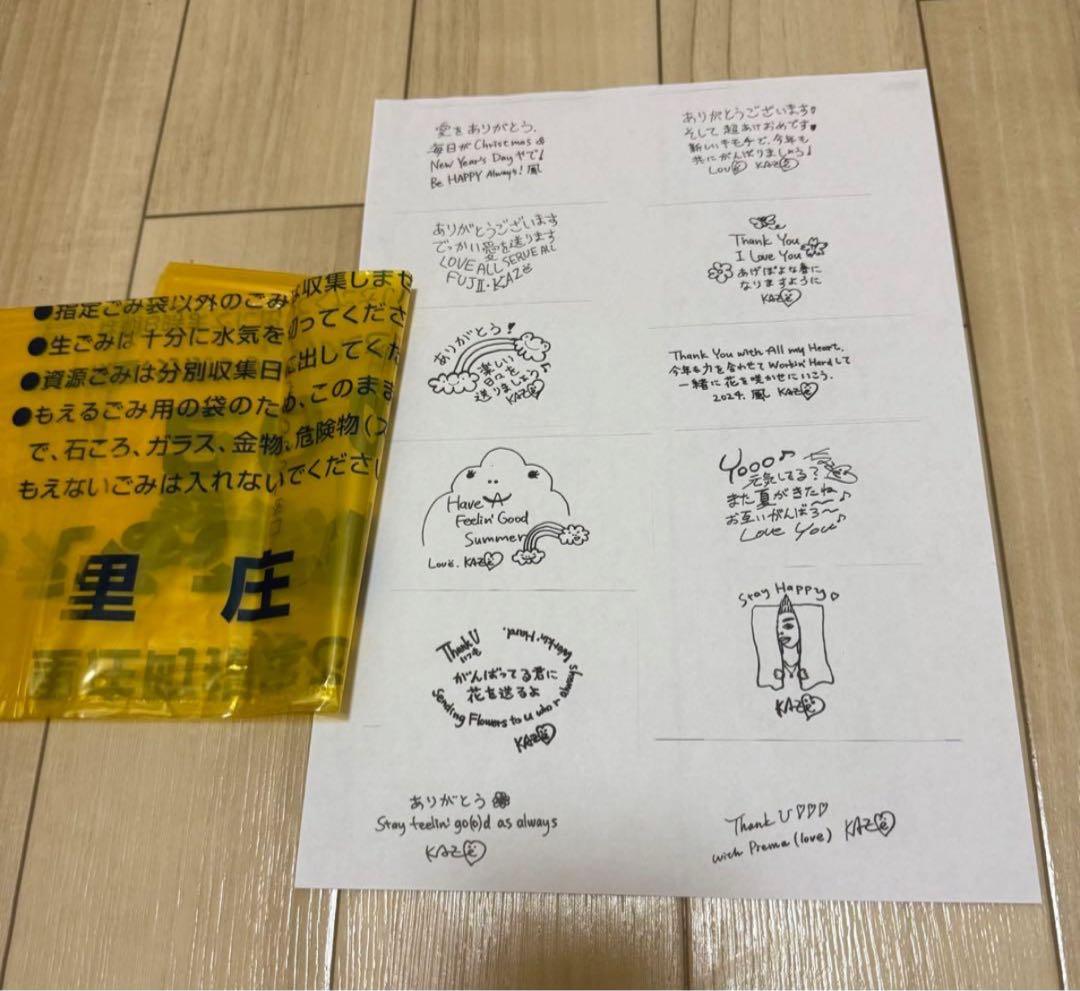 ●指定ごみ袋以外のごみ収集しませ
●生ごみは十分に水気を切ってくださ
●資源ごみは分別収集日に出してくだ
●もえるごみ用の袋のため、このまま
で、石ころ、ガラス、金物、危険物(
もえないごみは入れないでくださ
里庄
愛をありがとう、
毎日がChristmas &
New Year's Dayやで!
Be HAPPY Always! 風
ありがとうございます
でっかい愛を送ります
LOVE ALL SERVE ALL
FUJII・KAZE
ありがとう!
楽しい
日々を
送りましょう♪
KAZE
Have A
Feelin' Good
Summer
Love, KAZE
Thank U
いつも
がんばってる君に
花を送るよ
Sending Flowers to U who r always Workin' Hard.
KAZE
ありがとう
Stay feelin' go(o)d as always
KAZE
ありがとうございます!
そして超あけおめです♥
新しいキモチで、今年も
共にがんばりましょう!
LOVE KAZE
Thank You
I Love You
あげぽよな春に
なりますように
KAZE
Thank You with All my Heart.
今年も力を合わせてWorkin' Hardして
一緒に花を咲かせにいこう.
2024. 風 KAZE
Yooo♪
元気してる?
また夏がきたね
お互いがんばろ〜♪
Love You♪
Stay Happy♡
KAZE
Thank U♡♡♡
with Prema (love) KAZE